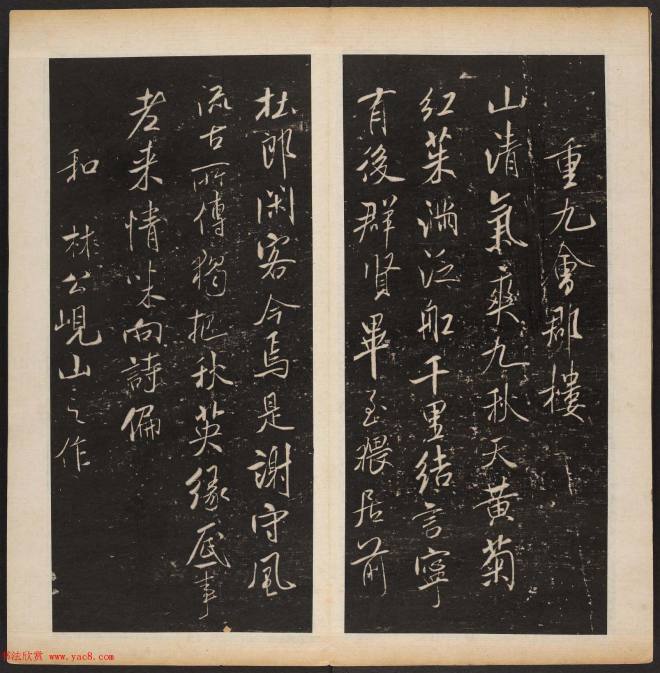 重九會郡樓
山清氣爽九秋天黃菊
紅茱滿泛船千里結言寧
有後群賢畢至猥居前
杜郎閑客今焉是謝守風
流古所傳獨把秋英緣底事
老來情味向詩偏
和 林公峴山之作
书法欣赏 www.yac8.com